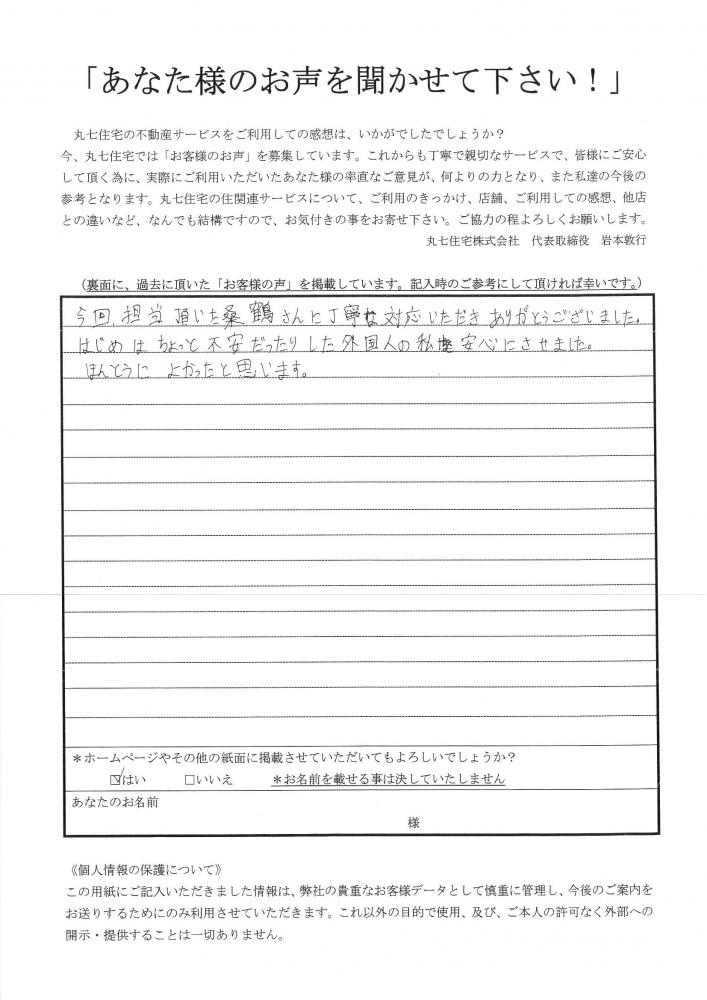 「あなた様のお声を聞かせて下さい！」
丸七住宅の不動産サービスをご利用しての感想は、いかがでしたでしょうか？
今、丸七住宅では「お客様のお声」を募集しています。これからも丁寧で親切なサービスで、皆様にご安心
して頂く為に、実際にご利用いただいたあなた様の率直なご意見が、何よりの力となり、また私達の今後の
参考となります。丸七住宅の住関連サービスについて、ご利用のきっかけ、店舗、ご利用しての感想、他店
との違いなど、なんでも結構ですので、お気付きの事をお寄せ下さい。ご協力の程よろしくお願いします。
丸七住宅株式会社　代表取締役　岩本敦行
（裏面に、過去に頂いた「お客様の声」を掲載しています。記入時のご参考にして頂ければ幸いです。）
今回、担当頂いた桑鶴さんに丁寧な対応いただきありがとうございました。
はじめはちょっと不安だったりした外国人の私 安心にさせました。
ほんとうに よかったと思じます。
＊ホームページやその他の紙面に掲載させていただいてもよろしいでしょうか？
☑はい　□いいえ　＊お名前を載せる事は決していたしません
あなたのお名前
様
《個人情報の保護について》
この用紙にご記入いただきました情報は、弊社の貴重なお客様データとして慎重に管理し、今後のご案内を
お送りするためにのみ利用させていただきます。これ以外の目的で使用、及び、ご本人の許可なく外部への
開示・提供することは一切ありません。